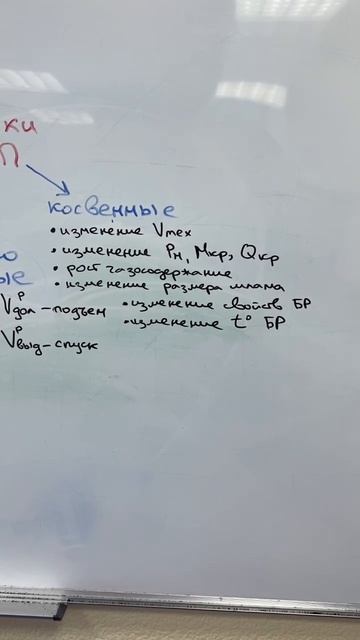 ки
П
косвенные
• изменение Vмех
• изменение Рн, Мкр, Qкр
ю
• рост газосодержание
ые
• изменение размера шлама
Vᵖдол - подъем • изменение свойств БР
• изменение t° БР
Vᵖвыд - спуск